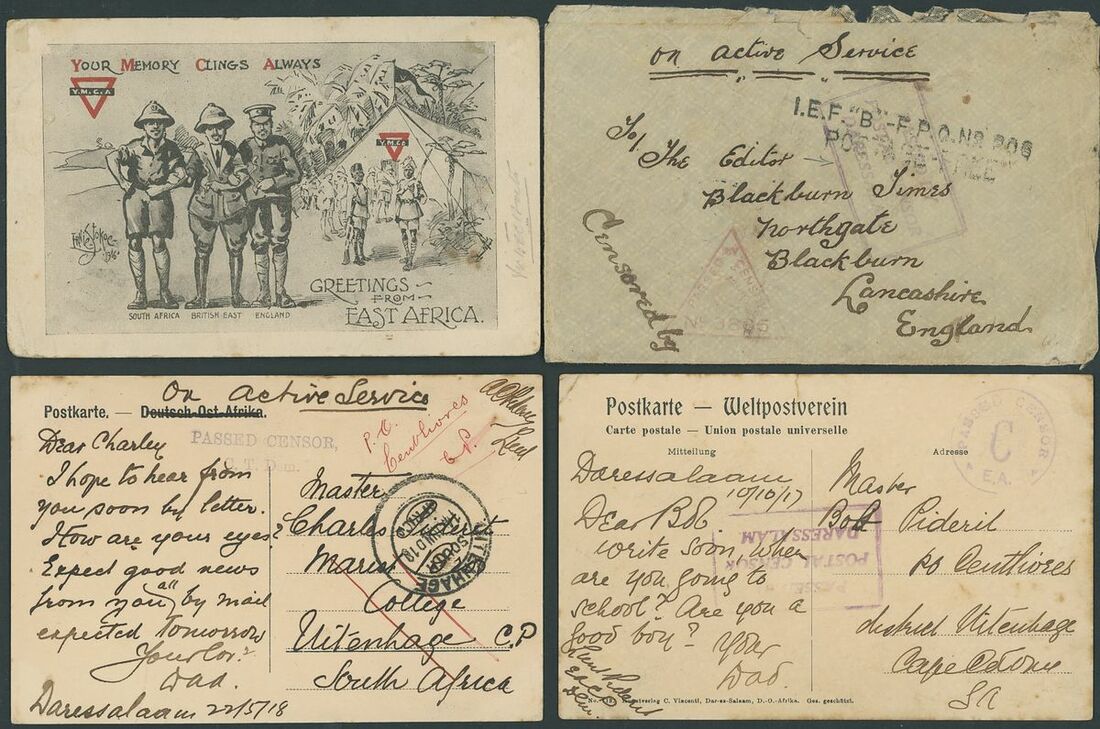 YOUR MEMORY CLINGS ALWAYS
Y.M.C.A
Y.M.C.A
GREETINGS
FROM
EAST AFRICA.
SOUTH AFRICA BRITISH EAST ENGLAND
1916
on active Service
I.E.F. "B" - F.P.O. No 306
To/
The Editor
Blackburn Times
Northgate
Blackburn
Lancashire
England
Censored by
PASSED CENSOR
No 3865
On Active Service
Postkarte. — Deutsch-Ost-Afrika.
PASSED CENSOR,
P.O.
Centlivres
C.P.
Dear Charley
I hope to hear from
you soon by letter.
How are your eyes?
Expect good news
from you all by mail
expected tomorrow
Dad.
Daressalaam 22/5/18
Master
Charles
Marist
College
Uitenhage C.P
South Africa
UITENHAGE
Postkarte — Weltpostverein
Carte postale — Union postale universelle
Mitteilung
Adresse
PASSED CENSOR
C
E.A.
Daressalaam
10/10/17
Dear Bob.
write soon, when
are you going to
school? Are you a
good boy? Your
Dad.
PASSED
POSTAL CENSOR
DARESSALAM
Master
Bob Pideril
PO Centlivres
district Uitenhage
Cape Colony
SA
Kunstverlag C. Vincenti, Dar-es-Salaam, D.-O.-Afrika. Ges. geschützt.